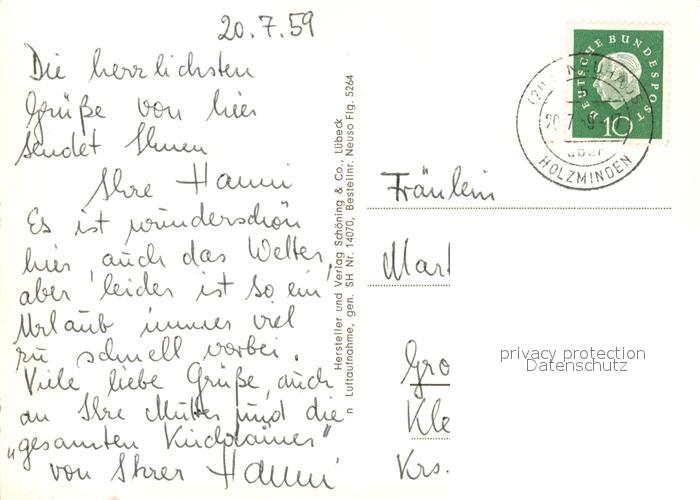 20.7.59
Die herzlichsten
Grüße von hier
sendet Ihnen
Ihre Hanni
Es ist wunderschön
hier, auch das Wetter,
aber leider ist so ein
Urlaub immer viel
zu schnell vorbei.
Viele liebe Grüße, auch
an Ihre Mutter und die
"gesamten
von Ihrer Hanni
Hersteller und Verlag Schöning & Co., Lübeck
n Luftaufnahme, gen. SH Nr. 14070, Bestellnr. Neuso Flg. 5264
DEUTSCHE BUNDESPOST
10
NEUHAUS
über
HOLZMINDEN
Fräulein
Mart
Gro
Kle
Krs.
privacy protection
Datenschutz